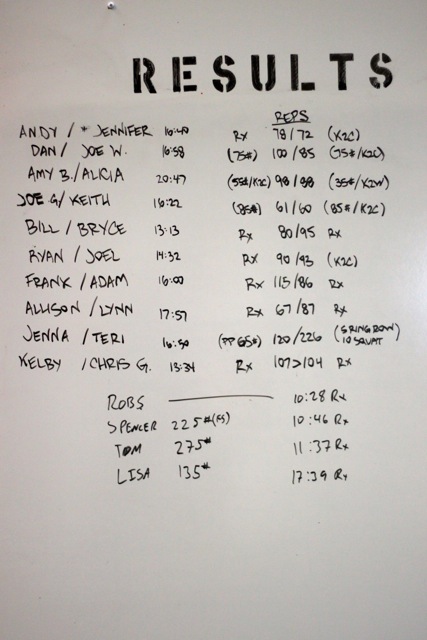 RESULTS
REPS
ANDY / * JENNIFER 16:40 Rx 78/72 (K2C)
DAN / JOE W. 16:58 (75#) 100/85 (75#/K2C)
AMY B./ALICIA 20:47 (55#/K2C) 98/88 (35#/K2W)
JOE G/KEITH 16:22 (85#) 61/60 (85#/K2C)
BILL / BRYCE 13:13 Rx 80/95 Rx
RYAN / JOEL 14:32 Rx 90/93 (K2C)
FRANK / ADAM 16:00 Rx 115/86 Rx
ALLISON / LYNN 17:57 Rx 67/87 Rx
JENNA / TERI 16:50 (PP 65#) 120/226 (5 RING ROW) 10 SQUAT
KELBY / CHRIS G. 13:34 Rx 107>104 Rx
ROBS 10:28 Rx
SPENCER 225#(FS) 10:46 Rx
TOM 275# 11:37 Rx
LISA 135# 17:39 Rx